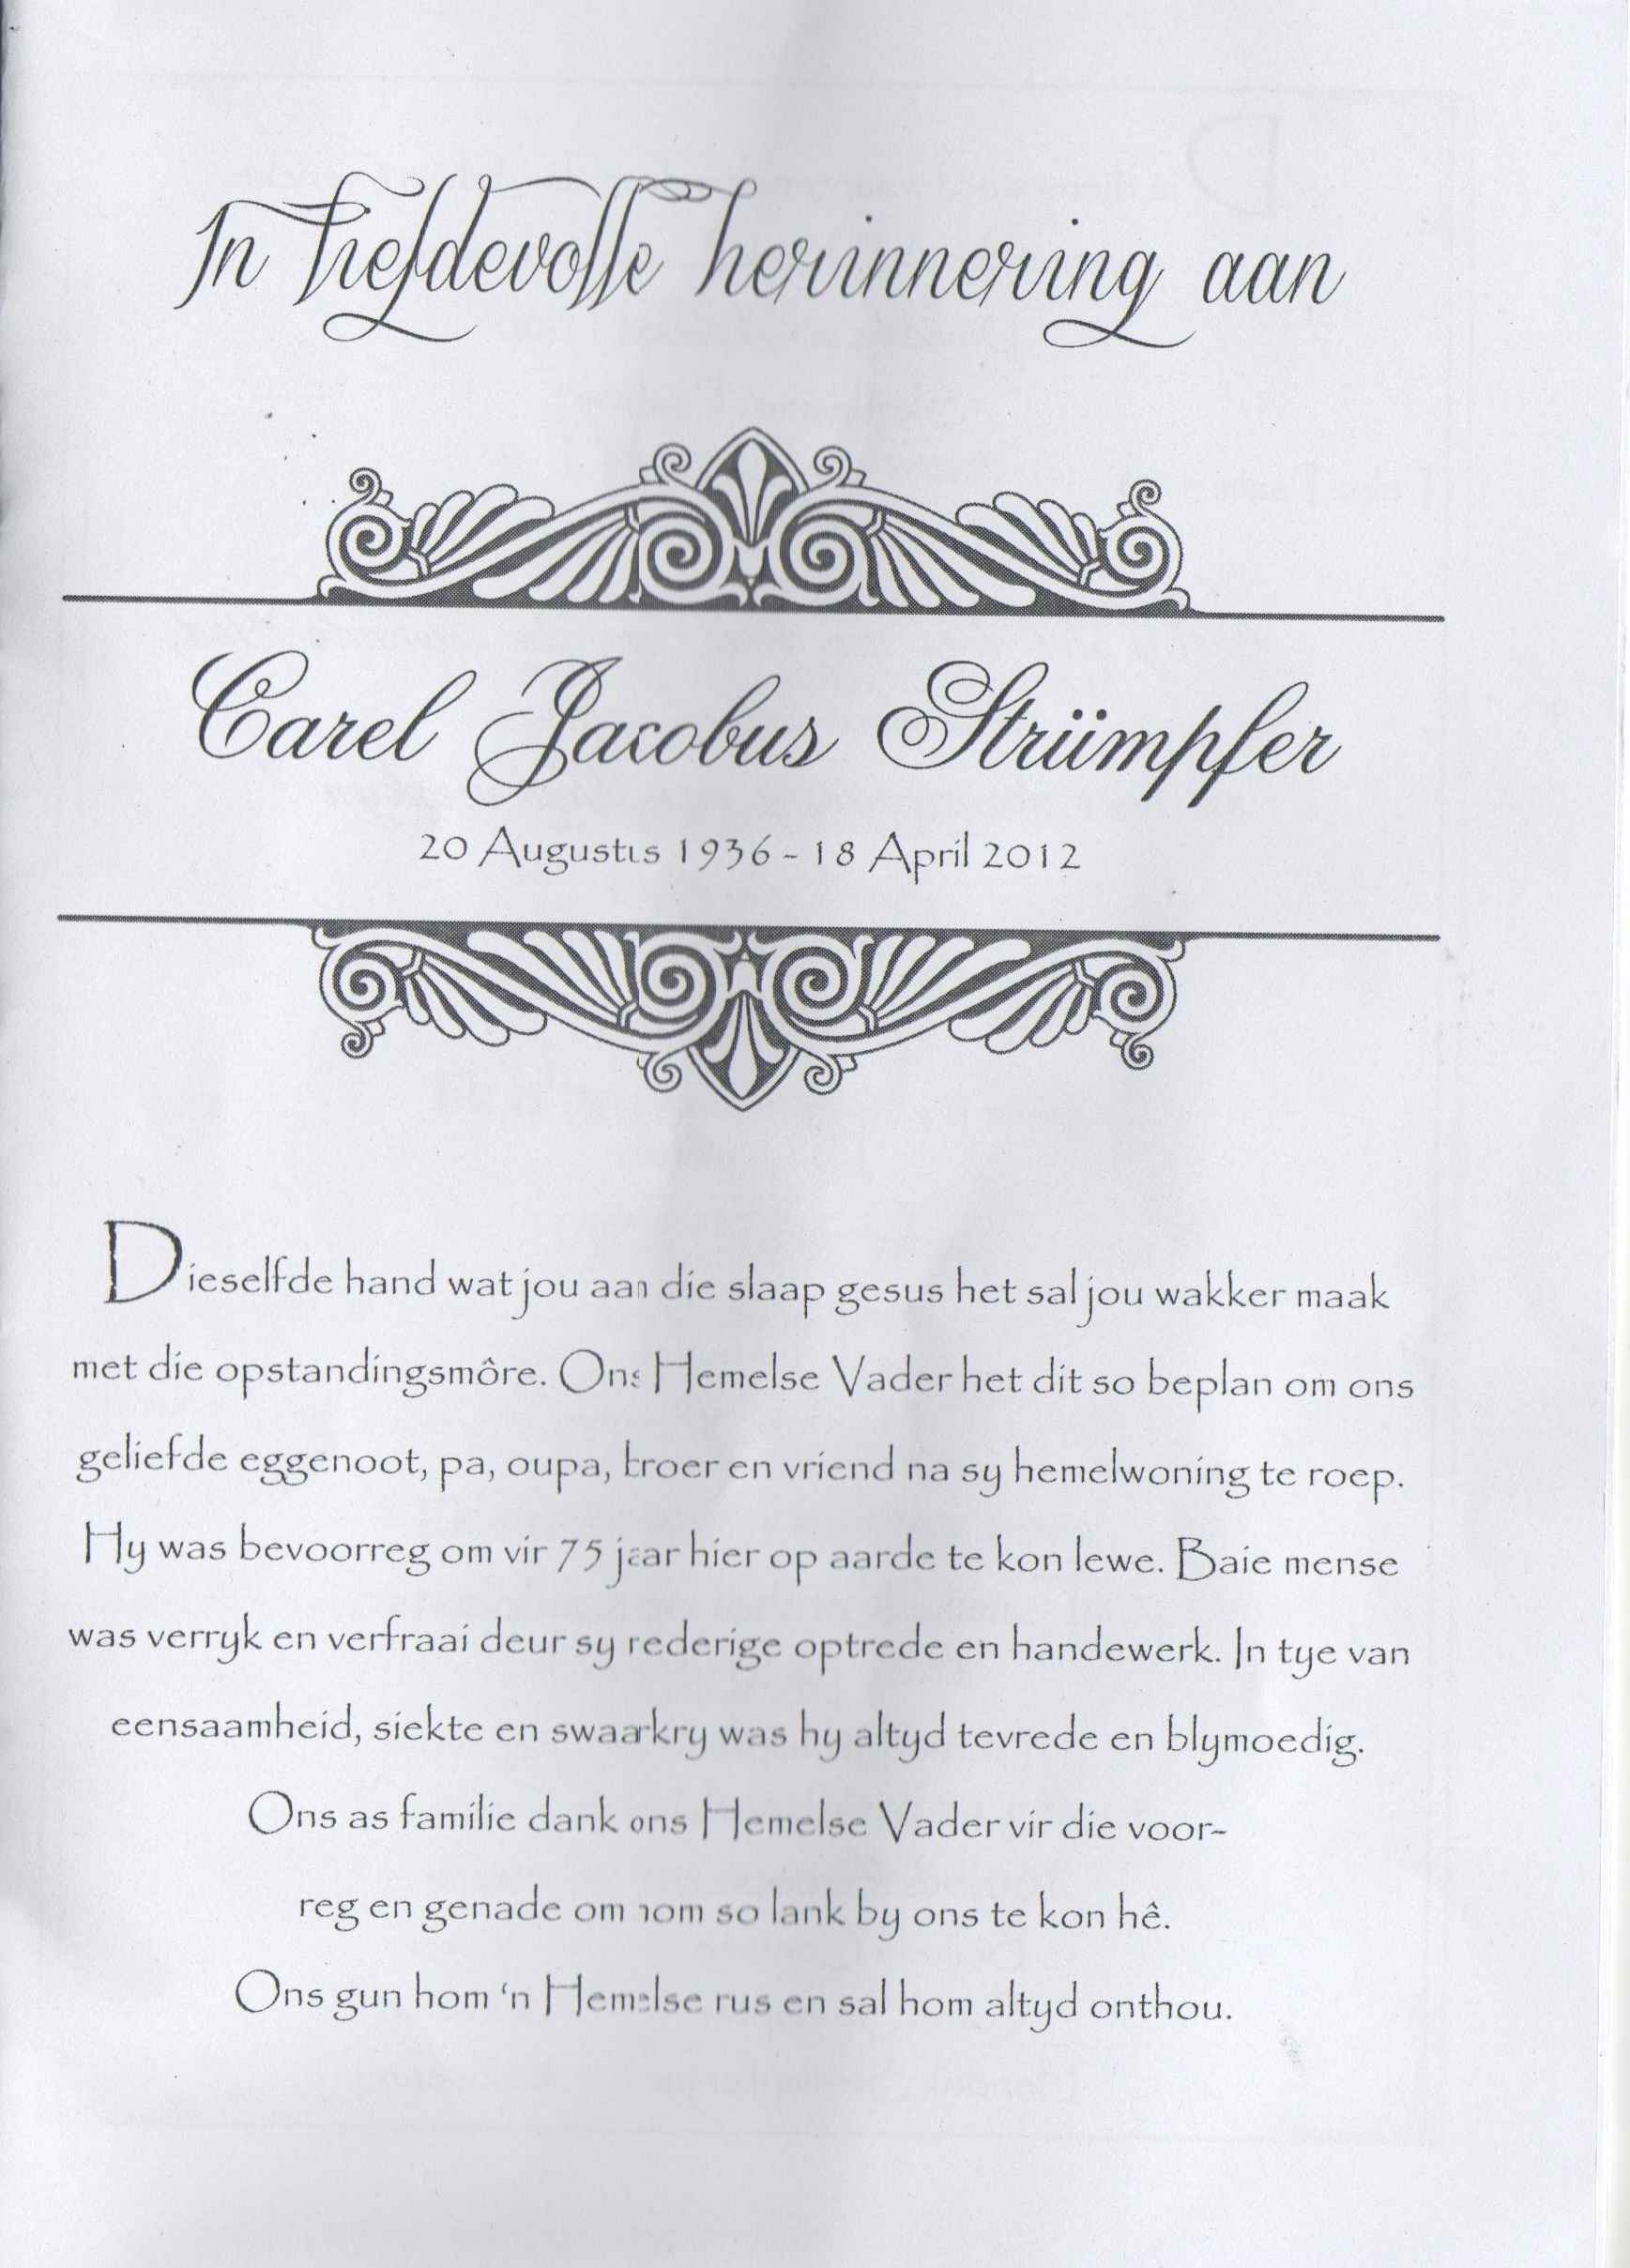 In liefdevolle herinnering aan
Carel Jacobus Strümpfer
20 Augustus 1936 - 18 April 2012
Dieselfde hand wat jou aan die slaap gesus het sal jou wakker maak
met die opstandingsmôre. Ons Hemelse Vader het dit so beplan om ons
geliefde eggenoot, pa, oupa, broer en vriend na sy hemelwoning te roep.
Hy was bevoorreg om vir 75 jaar hier op aarde te kon lewe. Baie mense
was verryk en verfraai deur sy rederige optrede en handewerk. In tye van
eensaamheid, siekte en swaarkry was hy altyd tevrede en blymoedig.
Ons as familie dank ons Hemelse Vader vir die voor-
reg en genade om hom so lank by ons te kon hê.
Ons gun hom 'n Hemelse rus en sal hom altyd onthou.